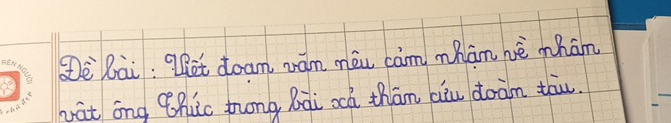 Đề bài: Viết đoạn văn nêu cảm nhận về nhân
vật ông Thức trong bài xả thân cứu đoàn tàu.